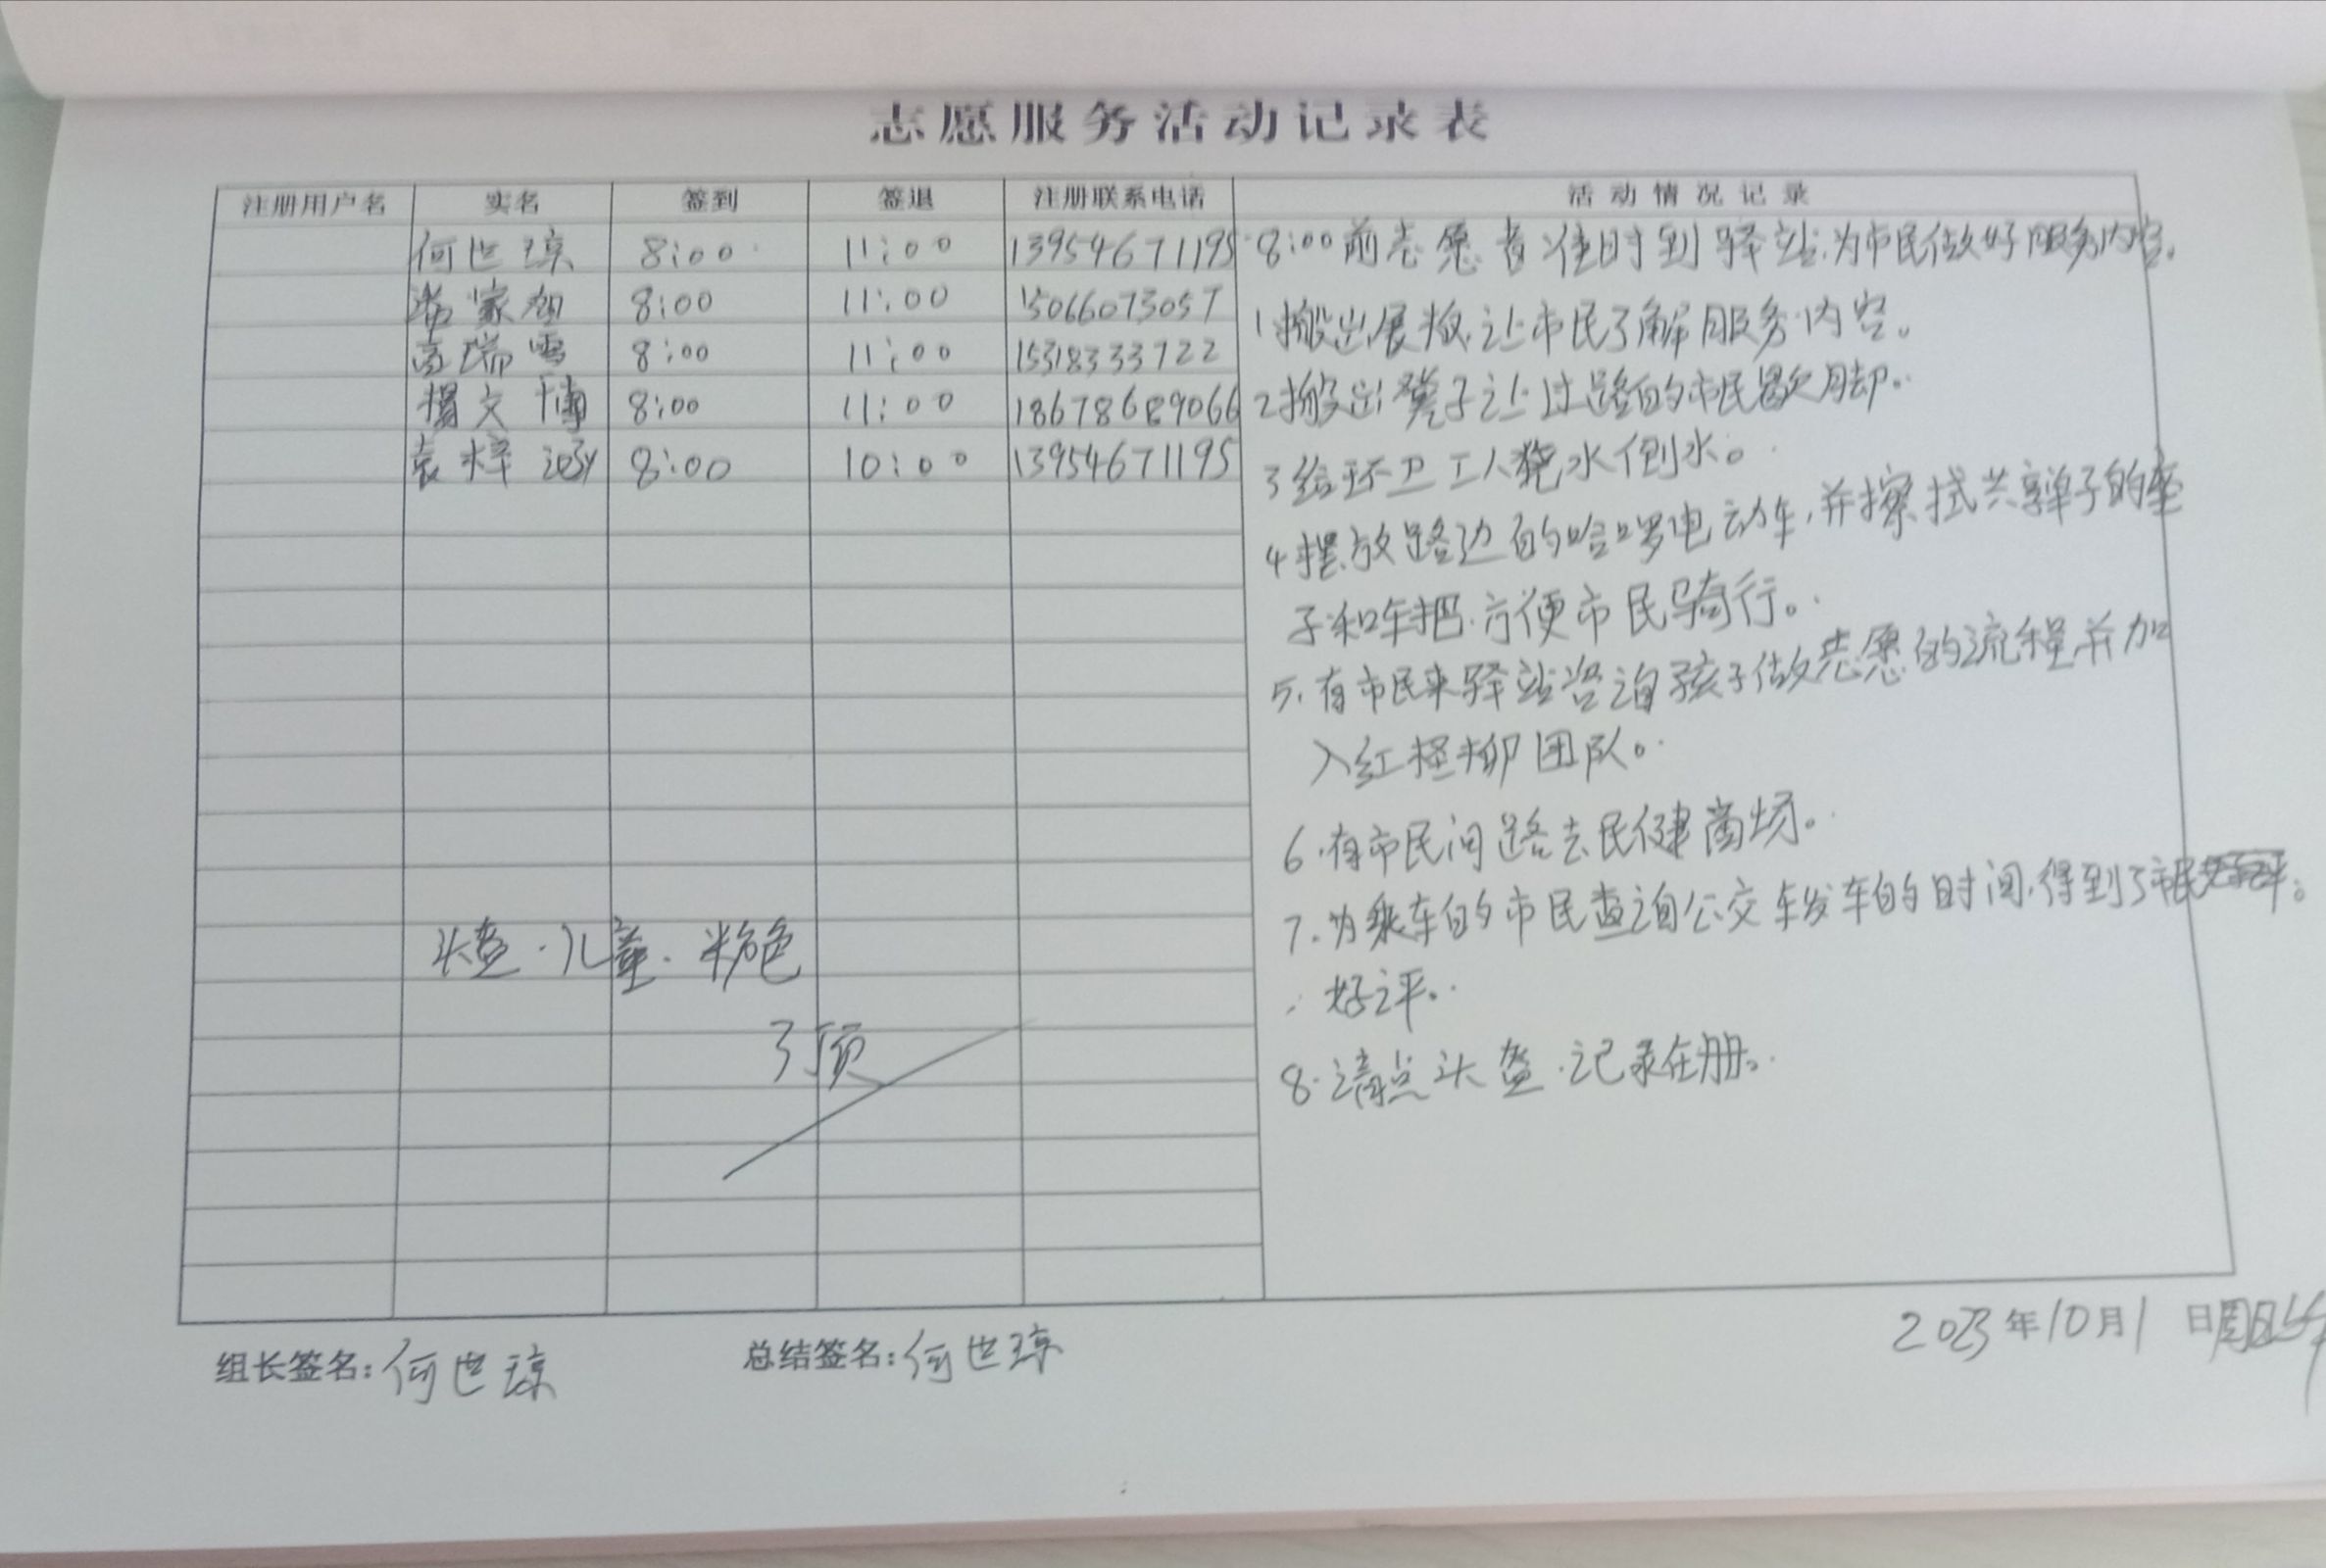 志愿服务活动记录表
注册用户名 实名 签到 签退 注册联系电话 活动情况记录
何世琼 8:00 11:00 13954671195
家旭 8:00 11:00 15066073057
高瑞雪 8:00 11:00 15318333722
杨文博 8:00 11:00 18678689066
袁梓涵 8:00 10:00 13954671195
头盔·儿童·粉色
3顶
8:00前志愿者准时到驿站,为市民做好服务内容。
1搬出展板,让市民了解服务内容。
2搬出凳子让过路的市民歇歇脚。
3给环卫工人烧水倒水。
4摆放路边的哈啰电动车,并擦拭共享单子的座
子和车把.方便市民骑行。
5.有市民来驿站咨询孩子做志愿的流程并加
入红柽柳团队。
6.有市民问路去民健菌场。
7.为乘车的市民查询公交车发车的时间,得到了市民
好评。
8.清点头盔.记录在册。
组长签名:何世琼 总结签名:何世琼 2023年10月1日周日上午